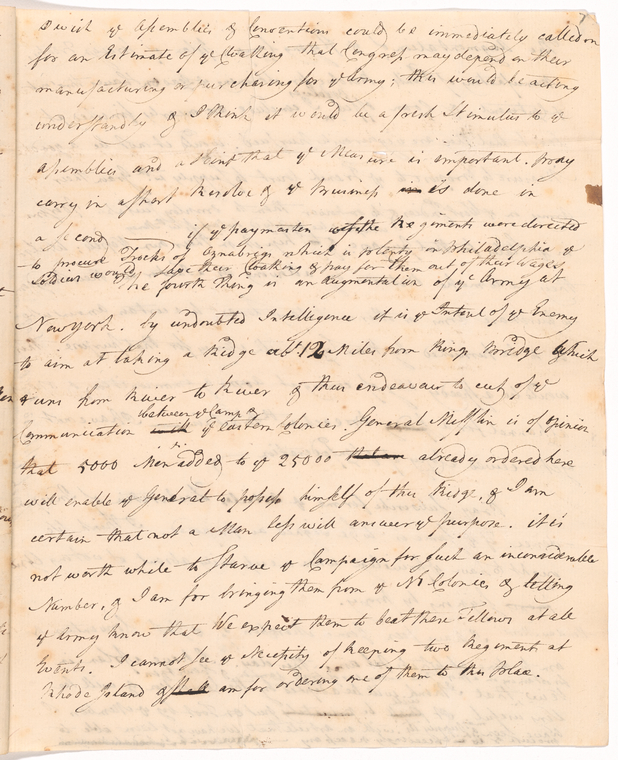 I wish ye Assemblies & Conventions could be immediately called on
for an Estimate of ye Cloathing that Congress may depend on their
manufacturing or purchasing for ye Army; this would be acting
understandly & I think it would be a fresh Stimulus to ye
Assemblies and a Hint that ye Measure is important. pray
carry in a short Resolve & ye Business is is done in
a second if ye paymasters of the Regiments were directed
to procure Frocks of Oznabrigs which is plenty in Philadelphia ye
Soldiers would save their Cloathing & pay for them out of their Wages
The fourth Thing is an augmentation of ye Army at
New York. by undoubted Intelligence it is ye Intent of ye Enemy
to aim at taking a Ridge abt 12 Miles from Kings Bridge which
runs from River to River & thus endeavour to cut of ye
between ye Camp &
Communication with ye eastern Colonies. General Mifflin is of opinion
that 5000 Men added to ye 25000 already ordered here
will enable ye General to possess himself of this Ridge, & I am
certain that not a Man less will answer ye purpose. it is
not worth while to Starve ye Campaign for such an inconsiderable
Number, & I am for bringing them from ye No Colonies & telling
ye Army know that We expect them to beat these Fellows at all
Events. I cannot see ye Necessity of keeping two Regiments at
Rhode Island & am for ordering one of them to this Place.